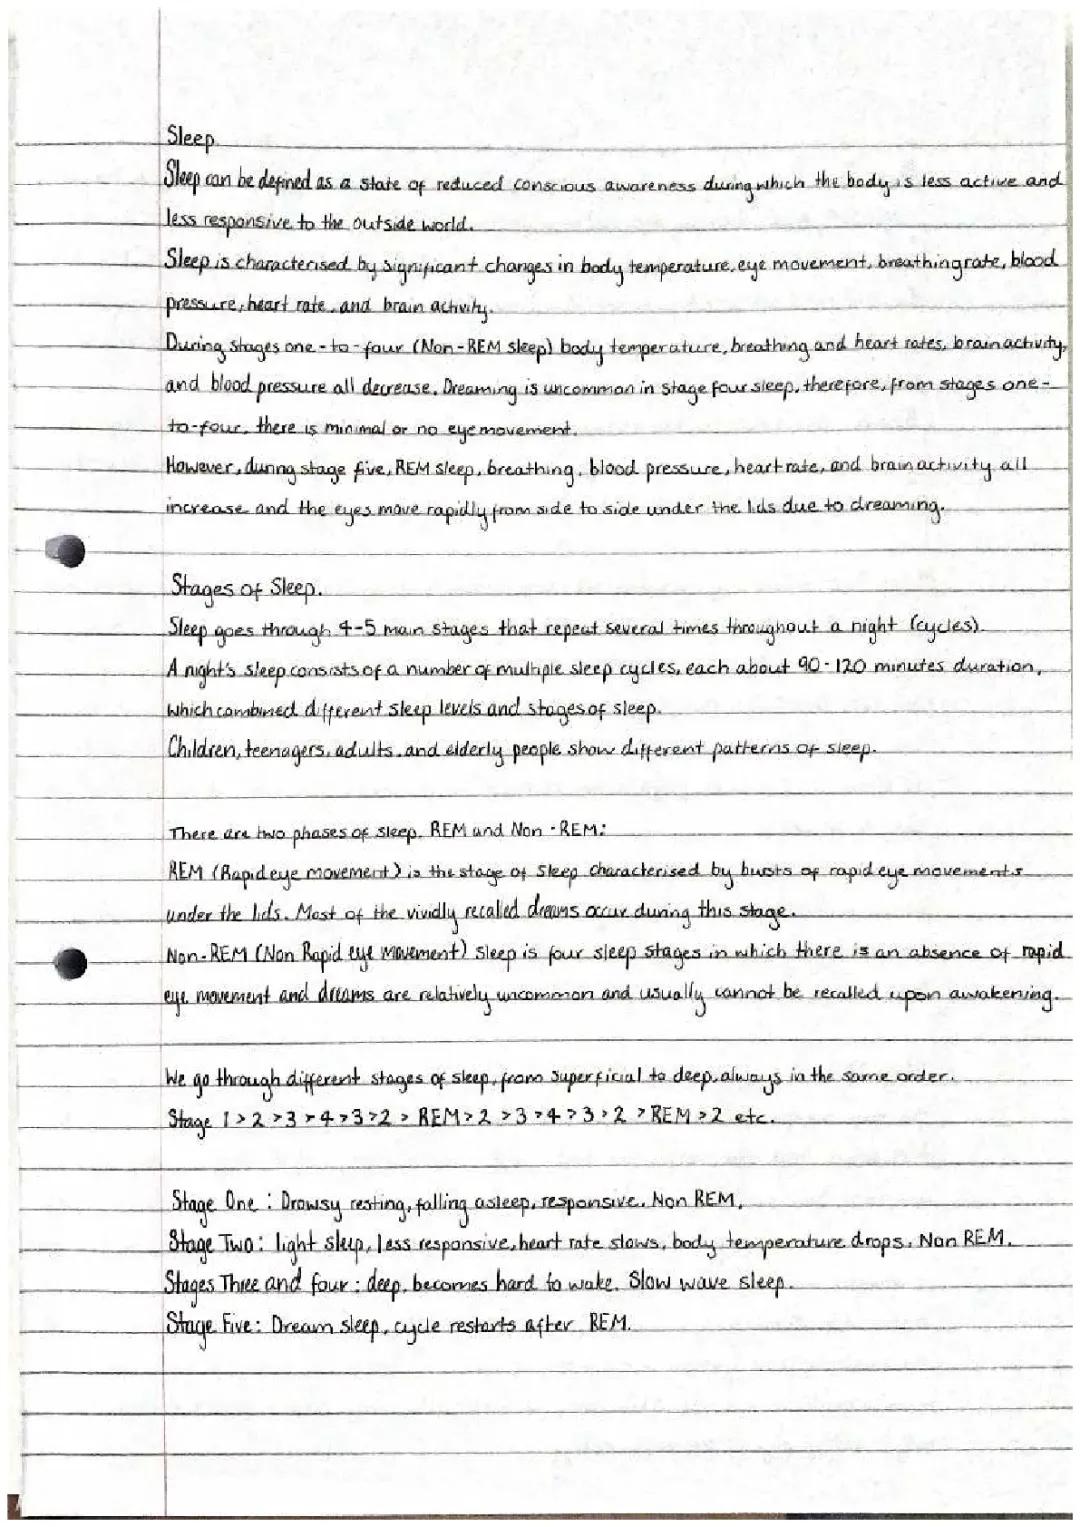 Sleep.
Sleep can be defined as a state of reduced conscious awareness during which the body is less active and
less responsive to the outside world.
Sleep is characterised by significant changes in body temperature, eye movement, breathing rate, blood
pressure, heart rate, and brain activity.
During stages one-to-four (Non-REM sleep) body temperature, breathing and heart rates, brain activity,
and blood pressure all decrease. Dreaming is uncommon in stage four sleep, therefore, from stages one-
to-four, there is minimal or no eye movement.
However, during stage five, REM sleep, breathing, blood pressure, heart rate, and brain activity all
increase and the eyes move rapidly from side to side under the lids due to dreaming.
Stages of Sleep.
Sleep goes through 4-5 main stages that repeat several times throughout a night (cycles).
A night's sleep consists of a number of multiple sleep cycles, each about 90-120 minutes duration,
which combined different sleep levels and stages of sleep.
Children, teenagers, adults, and elderly people show different patterns of sleep.
There are two phases of sleep, REM and Non-REM:
REM (Rapid eye movement) is the stage of sleep characterised by busts of rapid eye movements
under the lids. Most of the vividly recalled dreams occur during this stage.
Non-REM (Non Rapid eye movement) sleep is four sleep stages in which there is an absence of rapid
eye movement and dreams are relatively uncommon and usually cannot be recalled upon awakening.
We go through different stages of sleep, from superficial to deep, always in the same order.
Stage 1>2>3>4>3>2>REM>2>3>4>3>2>REM>2 etc.
Stage One: Drowsy resting, falling asleep, responsive. Non REM.
Stage Two: light sleep, less responsive, heart rate slows, body temperature drops. Non REM.
Stages Three and four: deep, becomes hard to wake. Slow wave sleep.
Stage Five: Dream sleep, cycle restarts after REM.